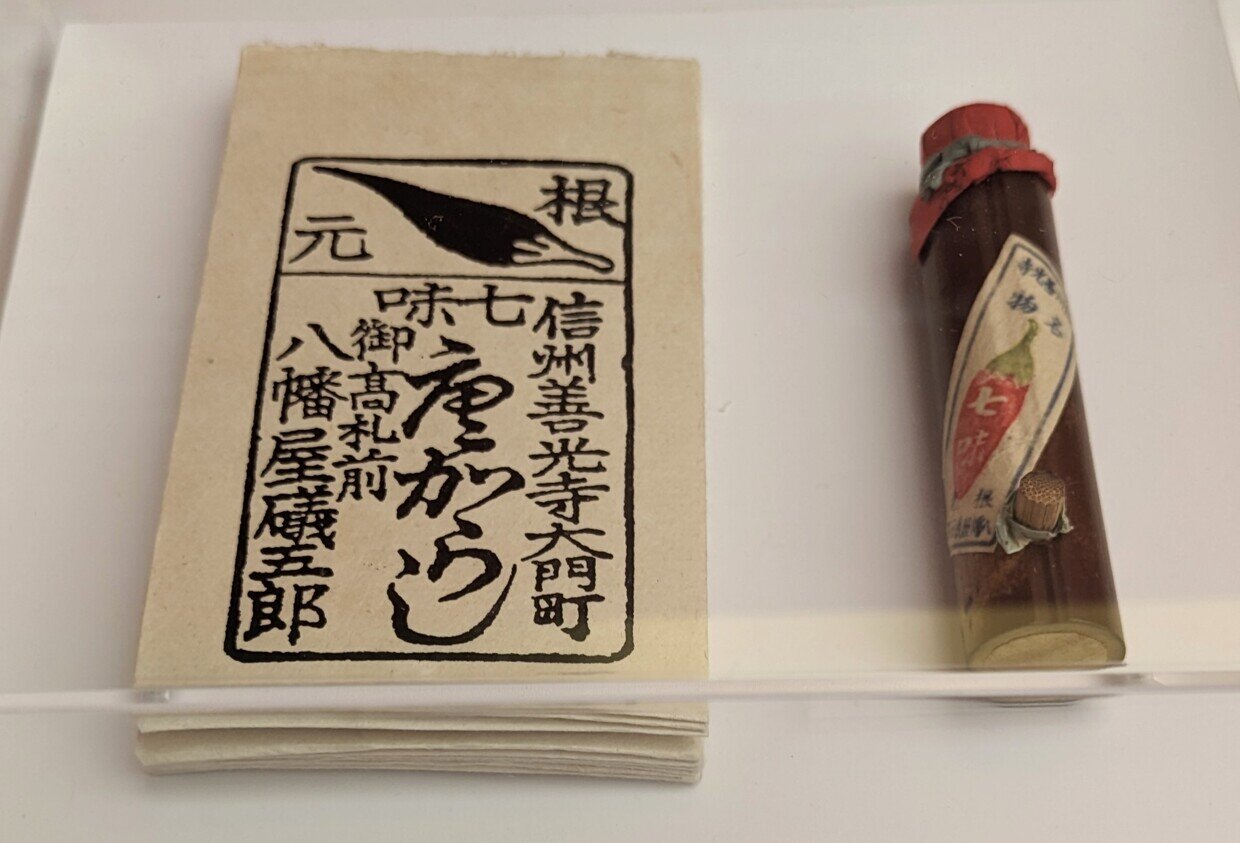 根元
信州善光寺大門町
七味
唐がらし
御高札前
八幡屋礒五郎
名物
七味
根